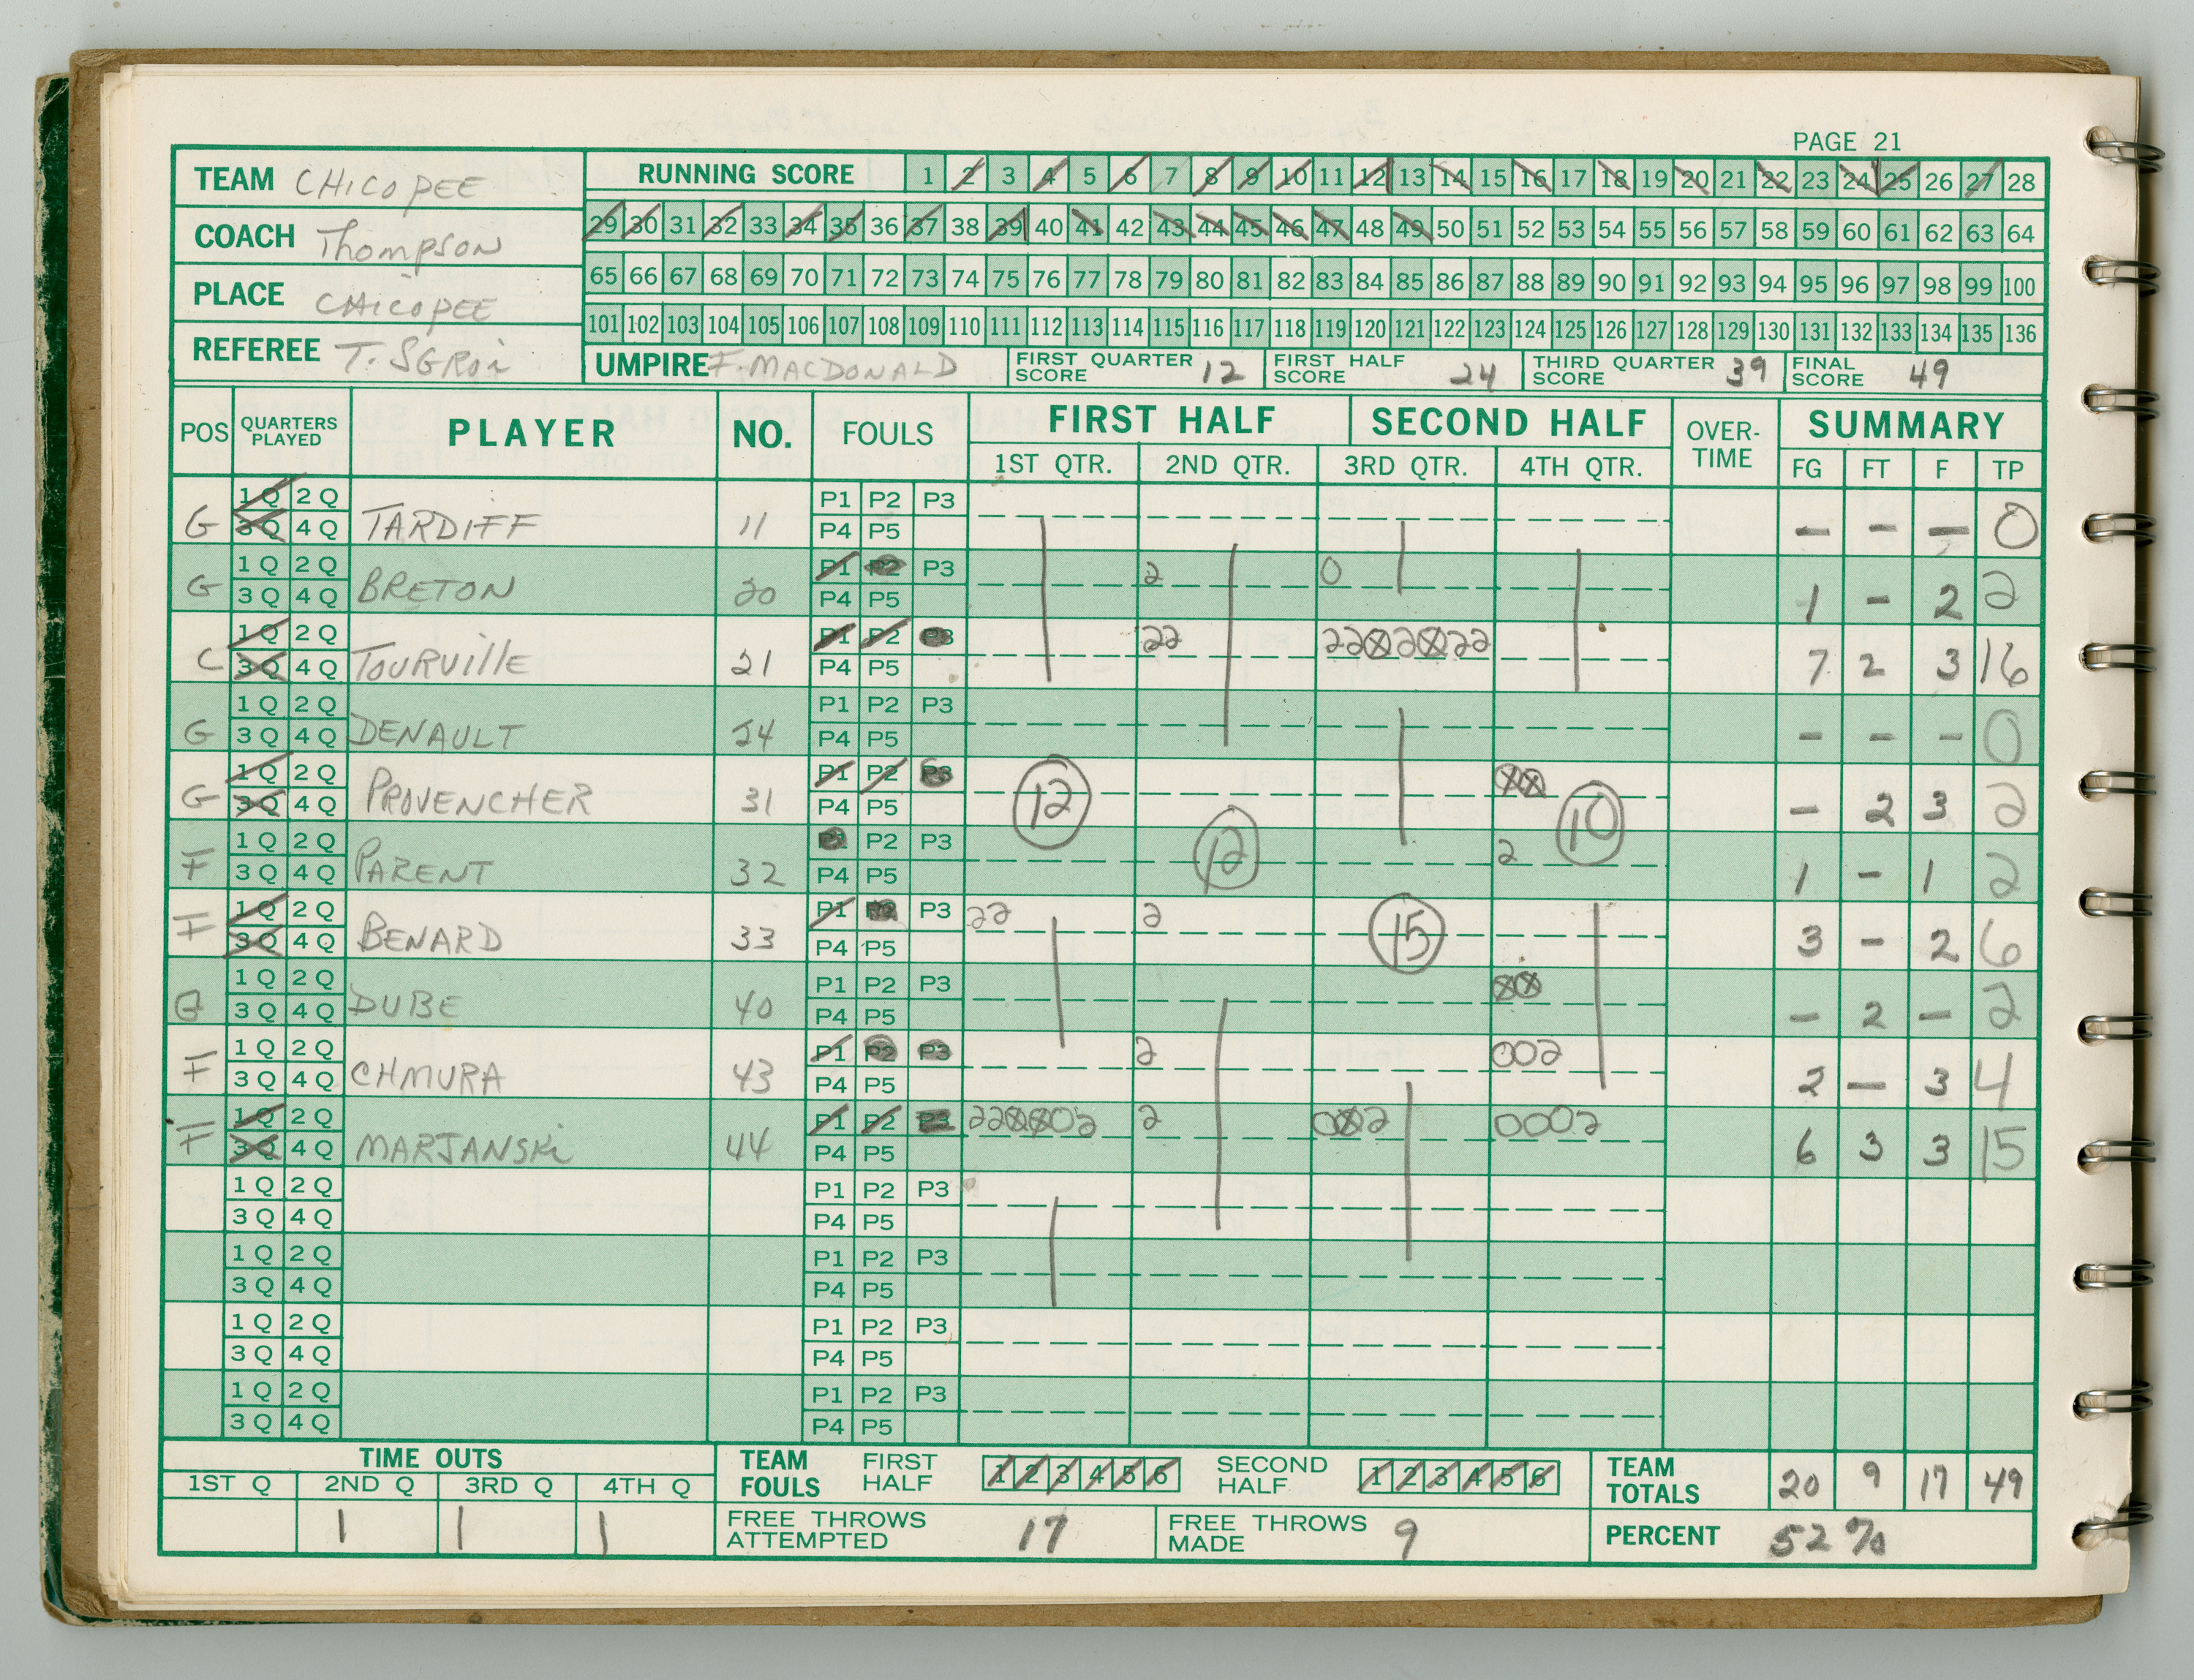 PAGE 21
TEAM CHICOPEE
COACH Thompson
PLACE CHICOPEE
REFEREE T. SGROI
RUNNING SCORE 1 2 3 4 5 6 7 8 9 10 11 12 13 14 15 16 17 18 19 20 21 22 23 24 25 26 27 28
29 30 31 32 33 34 35 36 37 38 39 40 41 42 43 44 45 46 47 48 49 50 51 52 53 54 55 56 57 58 59 60 61 62 63 64
65 66 67 68 69 70 71 72 73 74 75 76 77 78 79 80 81 82 83 84 85 86 87 88 89 90 91 92 93 94 95 96 97 98 99 100
101 102 103 104 105 106 107 108 109 110 111 112 113 114 115 116 117 118 119 120 121 122 123 124 125 126 127 128 129 130 131 132 133 134 135 136
UMPIRE F. MACDONALD FIRST QUARTER SCORE 12 FIRST HALF SCORE 24 THIRD QUARTER SCORE 39 FINAL SCORE 49
POS QUARTERS PLAYED PLAYER NO. FOULS FIRST HALF SECOND HALF OVER-TIME SUMMARY
1ST QTR. 2ND QTR. 3RD QTR. 4TH QTR. FG FT F TP
1 Q 2 Q P1 P2 P3
G 3 Q 4 Q TARDIFF 11 P4 P5 – – – 0
1 Q 2 Q P1 P2 P3 2 0
G 3 Q 4 Q BRETON 20 P4 P5 1 – 2 2
1 Q 2 Q P1 P2 P3 22 22⊗2⊗22
C 3 Q 4 Q TOURVIllE 21 P4 P5 7 2 3 16
1 Q 2 Q P1 P2 P3
G 3 Q 4 Q DENAULT 24 P4 P5 – – – 0
1 Q 2 Q P1 P2 P3 ⊗⊗
G 3 Q 4 Q PROVENCHER 31 P4 P5 12 10 – 2 3 2
1 Q 2 Q P1 P2 P3 2
F 3 Q 4 Q PARENT 32 P4 P5 12 1 – 1 2
1 Q 2 Q P1 P2 P3 22 2
F 3 Q 4 Q BENARD 33 P4 P5 15 3 – 2 6
1 Q 2 Q P1 P2 P3 ⊗⊗
G 3 Q 4 Q DUBE 40 P4 P5 – 2 – 2
1 Q 2 Q P1 P2 P3 2 002
F 3 Q 4 Q CHMURA 43 P4 P5 2 – 3 4
1 Q 2 Q P1 P2 P3 22⊗⊗02 2 0⊗2 0002
F 3 Q 4 Q MARJANSKi 44 P4 P5 6 3 3 15
1 Q 2 Q P1 P2 P3
3 Q 4 Q P4 P5
1 Q 2 Q P1 P2 P3
3 Q 4 Q P4 P5
1 Q 2 Q P1 P2 P3
3 Q 4 Q P4 P5
1 Q 2 Q P1 P2 P3
3 Q 4 Q P4 P5
TIME OUTS
1ST Q 2ND Q 3RD Q 4TH Q
1 1 1
TEAM FOULS FIRST HALF 1 2 3 4 5 6 SECOND HALF 1 2 3 4 5 6
TEAM TOTALS 20 9 17 49
FREE THROWS ATTEMPTED 17 FREE THROWS MADE 9 PERCENT 52%